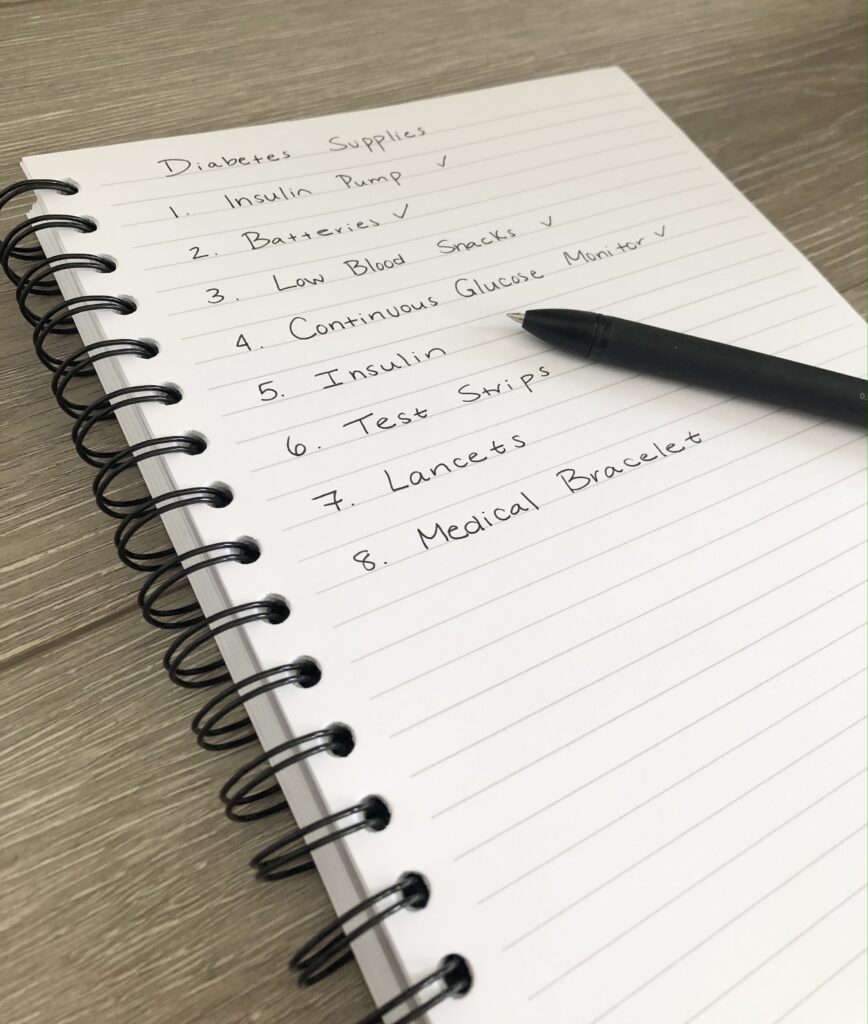 Diabetes Supplies
1. Insulin Pump ✓
2. Batteries ✓
3. Low Blood Snacks ✓
4. Continuous Glucose Monitor ✓
5. Insulin
6. Test Strips
7. Lancets
8. Medical Bracelet